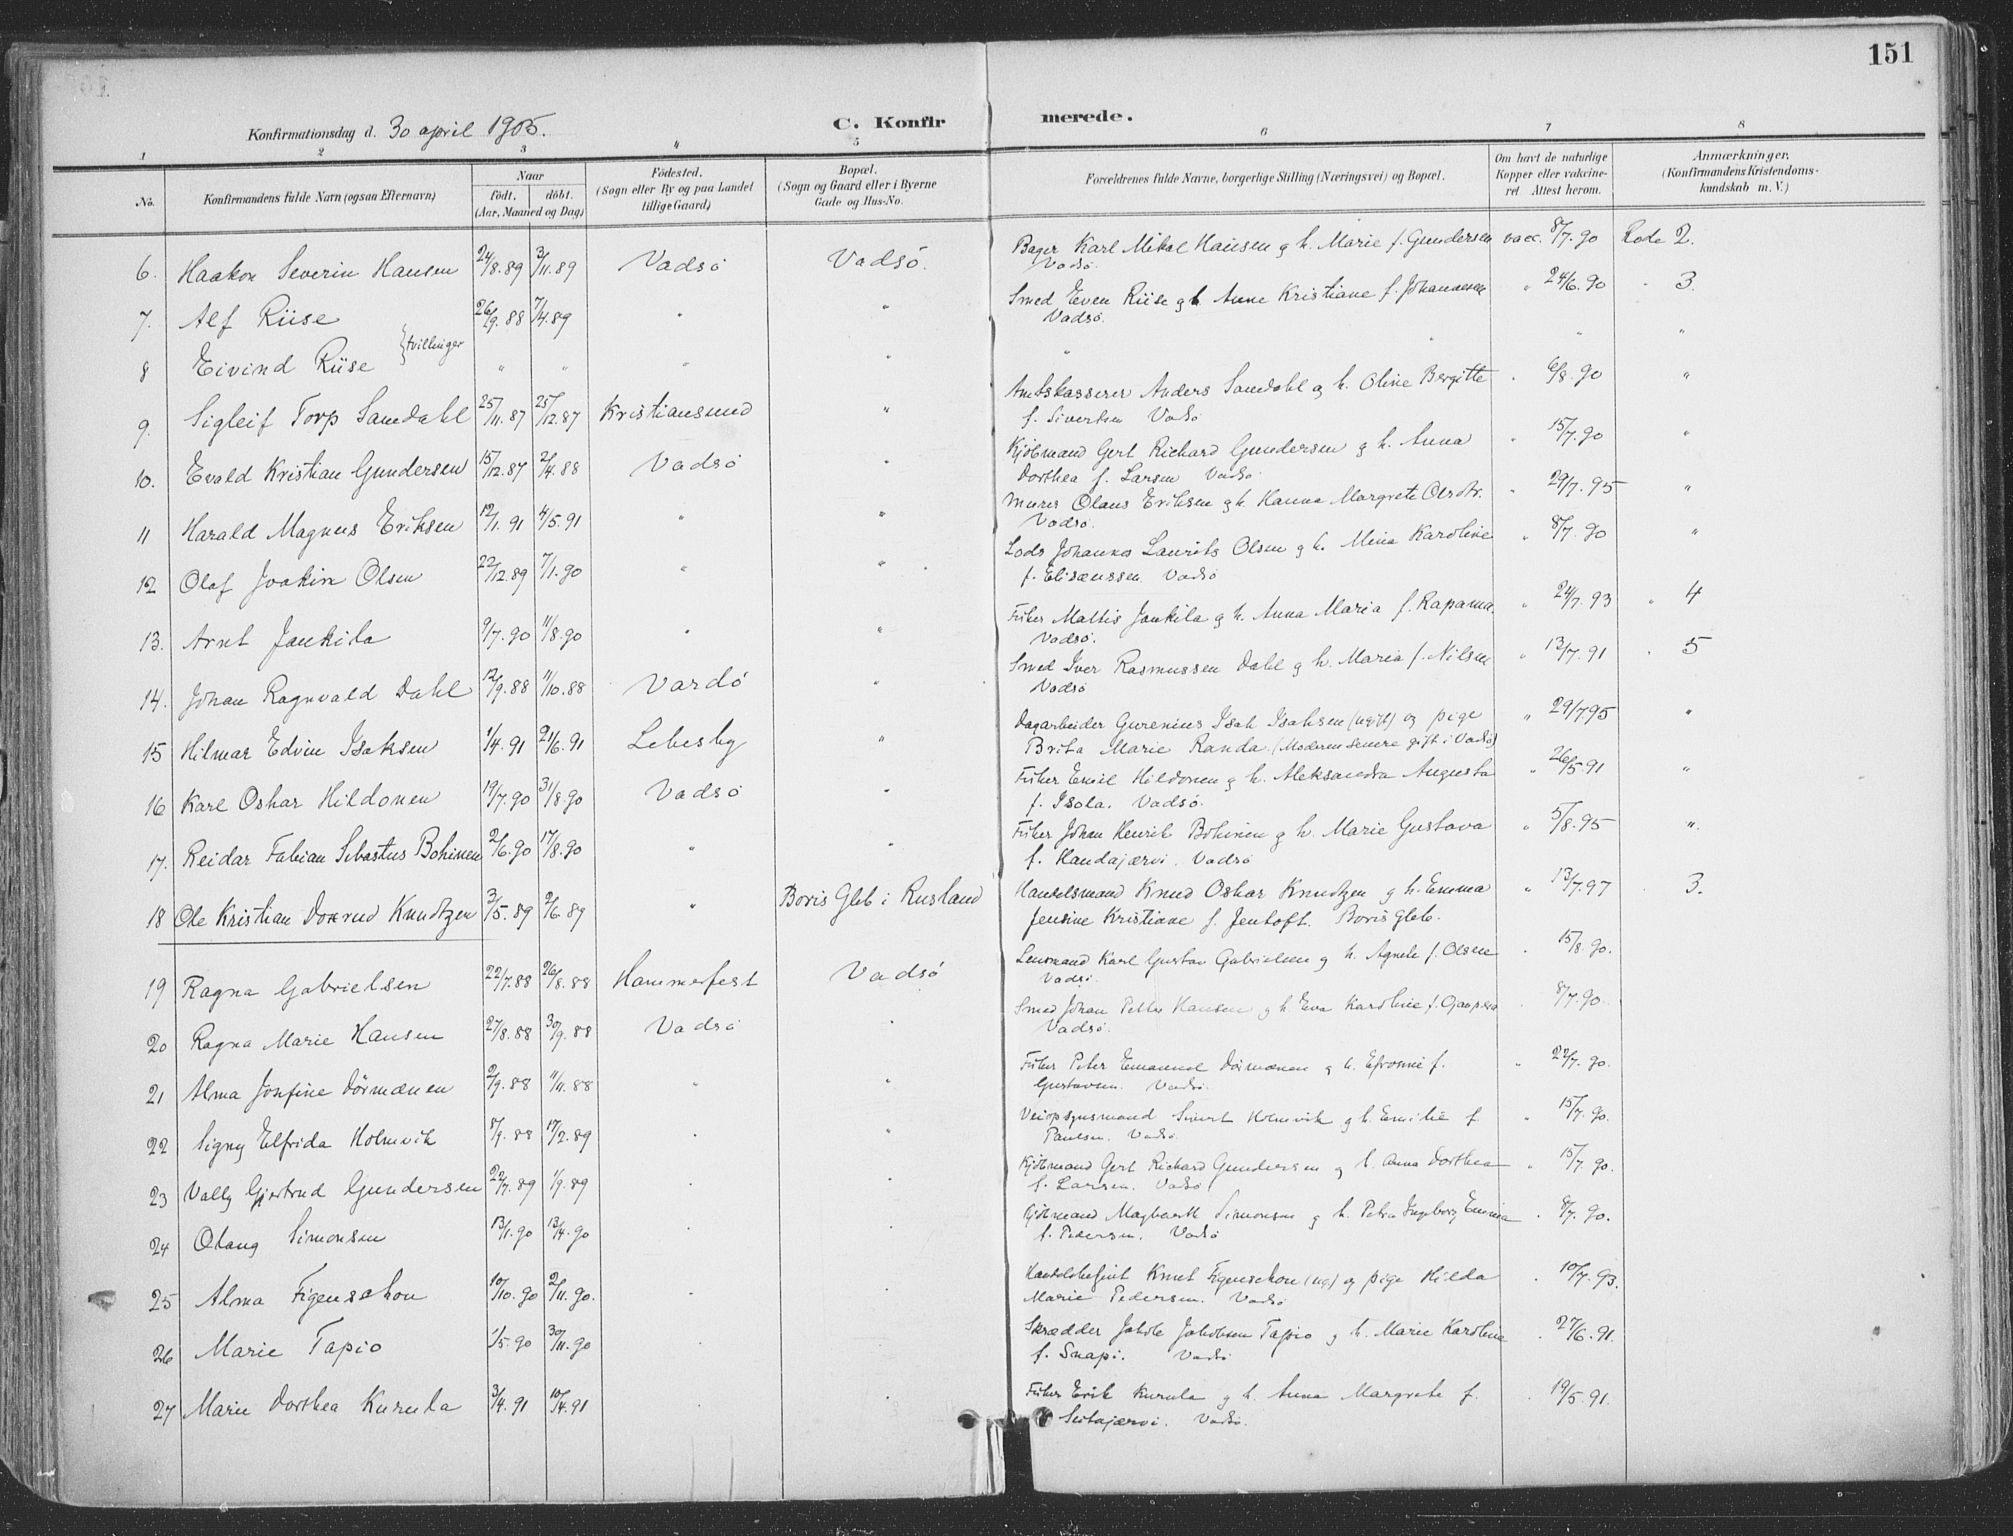 151
Konfirmationsdag d. 30 april 1905.
C. Konfirmerede.
1 2 3 4 5 6 7 8
No. Konfirmandens fulde Navn (ogsaa Efternavn) Naar født. døbt. (Aar, Maaned og Dag) Fødested. (Sogn eller By og paa Landet tillige Gaard) Bopæl. (Sogn og Gaard eller i Byerne Gade og Hus-No. Forældrenes fulde Navne, borgerlige Stilling (Næringsvei) og Bopæl. Om havt de naturlige Kopper eller vakcineret. Attest herom. Anmærkninger. (Konfirmandens Kristendomskundskab m. V.)
6. Haakon Severin Hansen 24/8.89 3/11.89 Vadsö Vadsö. Bager Karl Mikal Hansen g h. Marie f. Gundersen vacc. 8/7.90 Kode 2.
Vadsö.
7. Alf Riise 26/9.88 7/4.89 " " Smed Even Riise g h. Anne Kristiane f. Johannesen " 24/6.90 " 3.
Vadsö.
8 Eivind Riise } tvillinger " " " " " " " "
9. Sigleif Torp Samdahl 25/11.87 25/12.87 Kristiansund " Amtskasserer Anders Samdahl g h. Oline Bergitte " 6/8.90 "
f. Sivertsen Vadsö
10. Evald Kristian Gundersen 15/12.87 2/4.88 Vadsö " Kjöbmand Gert Richard Gundersen g h. Anna " 15/7.90 "
Dorthea f. Larsen Vadsö
11 Harald Magnus Eriksen 12/1.91 4/5.91 " " Murer Olaus Eriksen g h. Hanna Margrete Olsdtr. " 29/7.95 "
Vadsö.
12 Olaf Joakim Olsen 22/12.89 7/1.90 " " Lods Johannes Laurits Olsen g h. Mina Karoline " 8/7.90 "
f. Elisæussen. Vadsö
13. Arnt Jankila 9/7.90 11/8.90 " " Fisker Mattis Jankila g h. Anna Maria f. Rapama. " 24/7.93 " 4
Vadsö.
14. Johan Ragnvald Dahl 12/9.88 11/10.88 Vardö " Smed Iver Rasmussen Dahl g h. Maria f. Nilsen " 13/7.91 " 5
Vadsö
15 Hilmar Edvin Isaksen 1/4.91 21/6.91 Lebesby " Dagarbeider Gurenius Isak Isaksen (ugift) og pige " 29/7.95 "
Brita Marie Randa. (Moderen senere gift i Vadsö)
16 Karl Oskar Hildonen 19/7.90 31/8.90 Vadsö " Fisker Emil Hildonen g h. Aleksandra Augusta " 26/5.91 "
f. Isola. Vadsö.
17. Reidar Fabian Sebastus Bohinen 2/6.90 17/8.90 " " Fisker Johan Henrik Bohinen g h. Marie Gustava " 5/8.95 "
f. Handajærvi. Vadsö
18 Ole Kristian Doxrud Knudtzen 3/5.89 2/6.89 " Boris Gleb i Rusland Handelsmand Knud Oskar Knudtzen g h. Emma " 13/7.97 " 3.
Jensine Kristiane f. Jentoft. Boris gleb.
19 Ragna Gabrielsen 22/7.88 26/8.88 Hammerfest Vadsö Lensmand Karl Gustav Gabrielsen g h. Agnete f. Olsen " 15/8.90.
Vadsö
20 Ragna Marie Hansen 27/8.88 30/9.88 Vadsö " Smed Johan Petter Hansen g h. Eva Karoline f. " 8/7.90.
Vadsö.
21 Alma Josefine Dörmænen 2/9.88 11/11.88 " " Fisker Peter Emanuel Dörmænen g h. Efrosine f. " 22/7.90.
Gustavsen. Vadsö.
22 Signy Elfrida Holmvik 8/9.88 17/2.89 " " Veiopsynsmand Sivert Holmvik g h. Emilie f. " 15/7.90.
Paulsen. Vadsö.
23 Vally Gjertrud Gundersen 22/7.89 1/9.89 " " Kjöbmand Gert Richard Gundersen g h. Anna Dorthea " 15/7.90.
f. Larsen. Vadsö
24 Olaug Simonsen 13/1.90 13/4.90 " " Kjöbmand Simonsen g h. Petra Ingeborg Emma " 8/7.90.
f. Pedersen. Vadsö
25 Alma Figenschou 10/10.90 2/11.90. " " Handelsbetjent Knut Figenschou (ug.) og pige Hilda " 10/7.93.
Marie Pedersen. Vadsö
26 Marie Tapio 1/5.90 30/11.90 " " Skrædder Jakob Jakobsen Tapio g h. Marie Karoline " 27/6.91.
f. Snapi. Vadsö
27 Marie Dorthea Kurula 3/4.91 10/4.91 " " Fisker Erik Kurula g h. Anna Margrete f. " 19/5.91.
Seitajærvi. Vadsö.